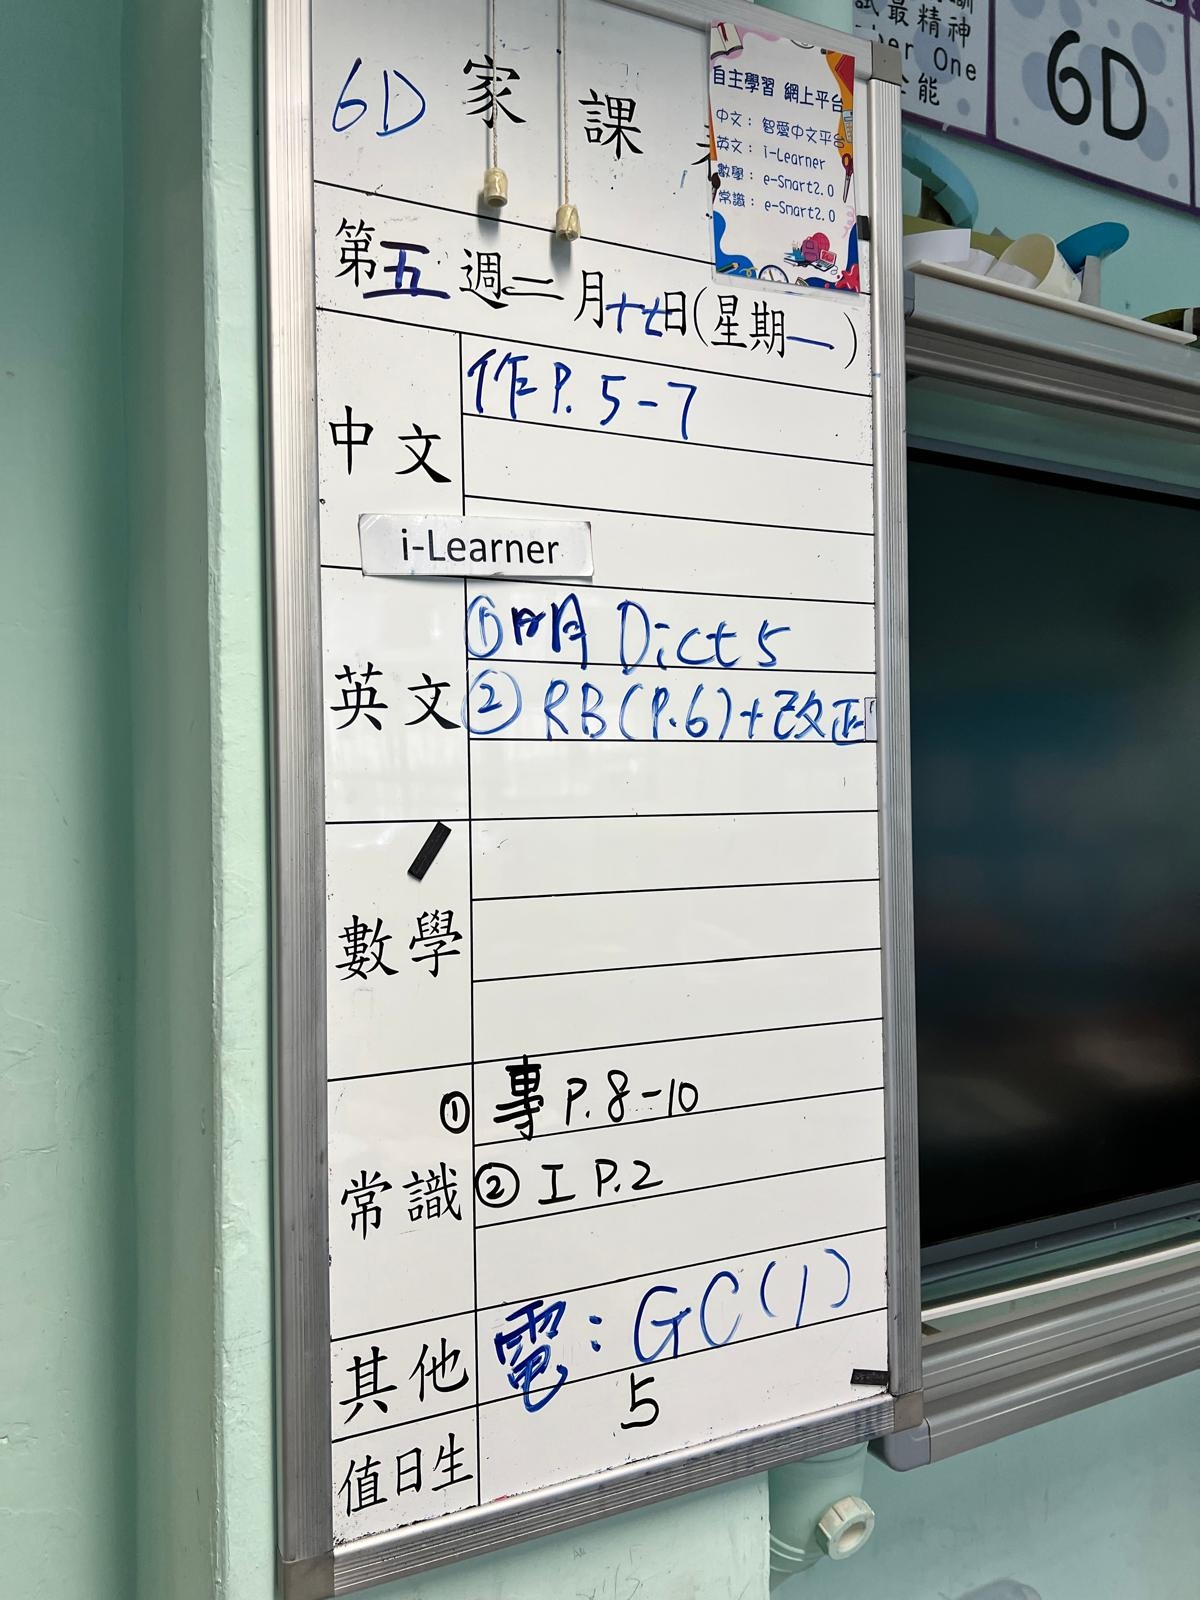 6D 家課
自主學習 網上平台
中文： 智愛中文平台
英文： i-Learner
數學： e-Smart2.0
常識： e-Smart2.0
試最精神
ber One
全能
6D
第五週二月十七日(星期一)
中文
作P.5-7
i-Learner
英文
①明 Dict 5
② RB(P.6)+改正
數學
常識
① 專 P.8-10
② I P.2
其他
電：GC(1)
值日生
5